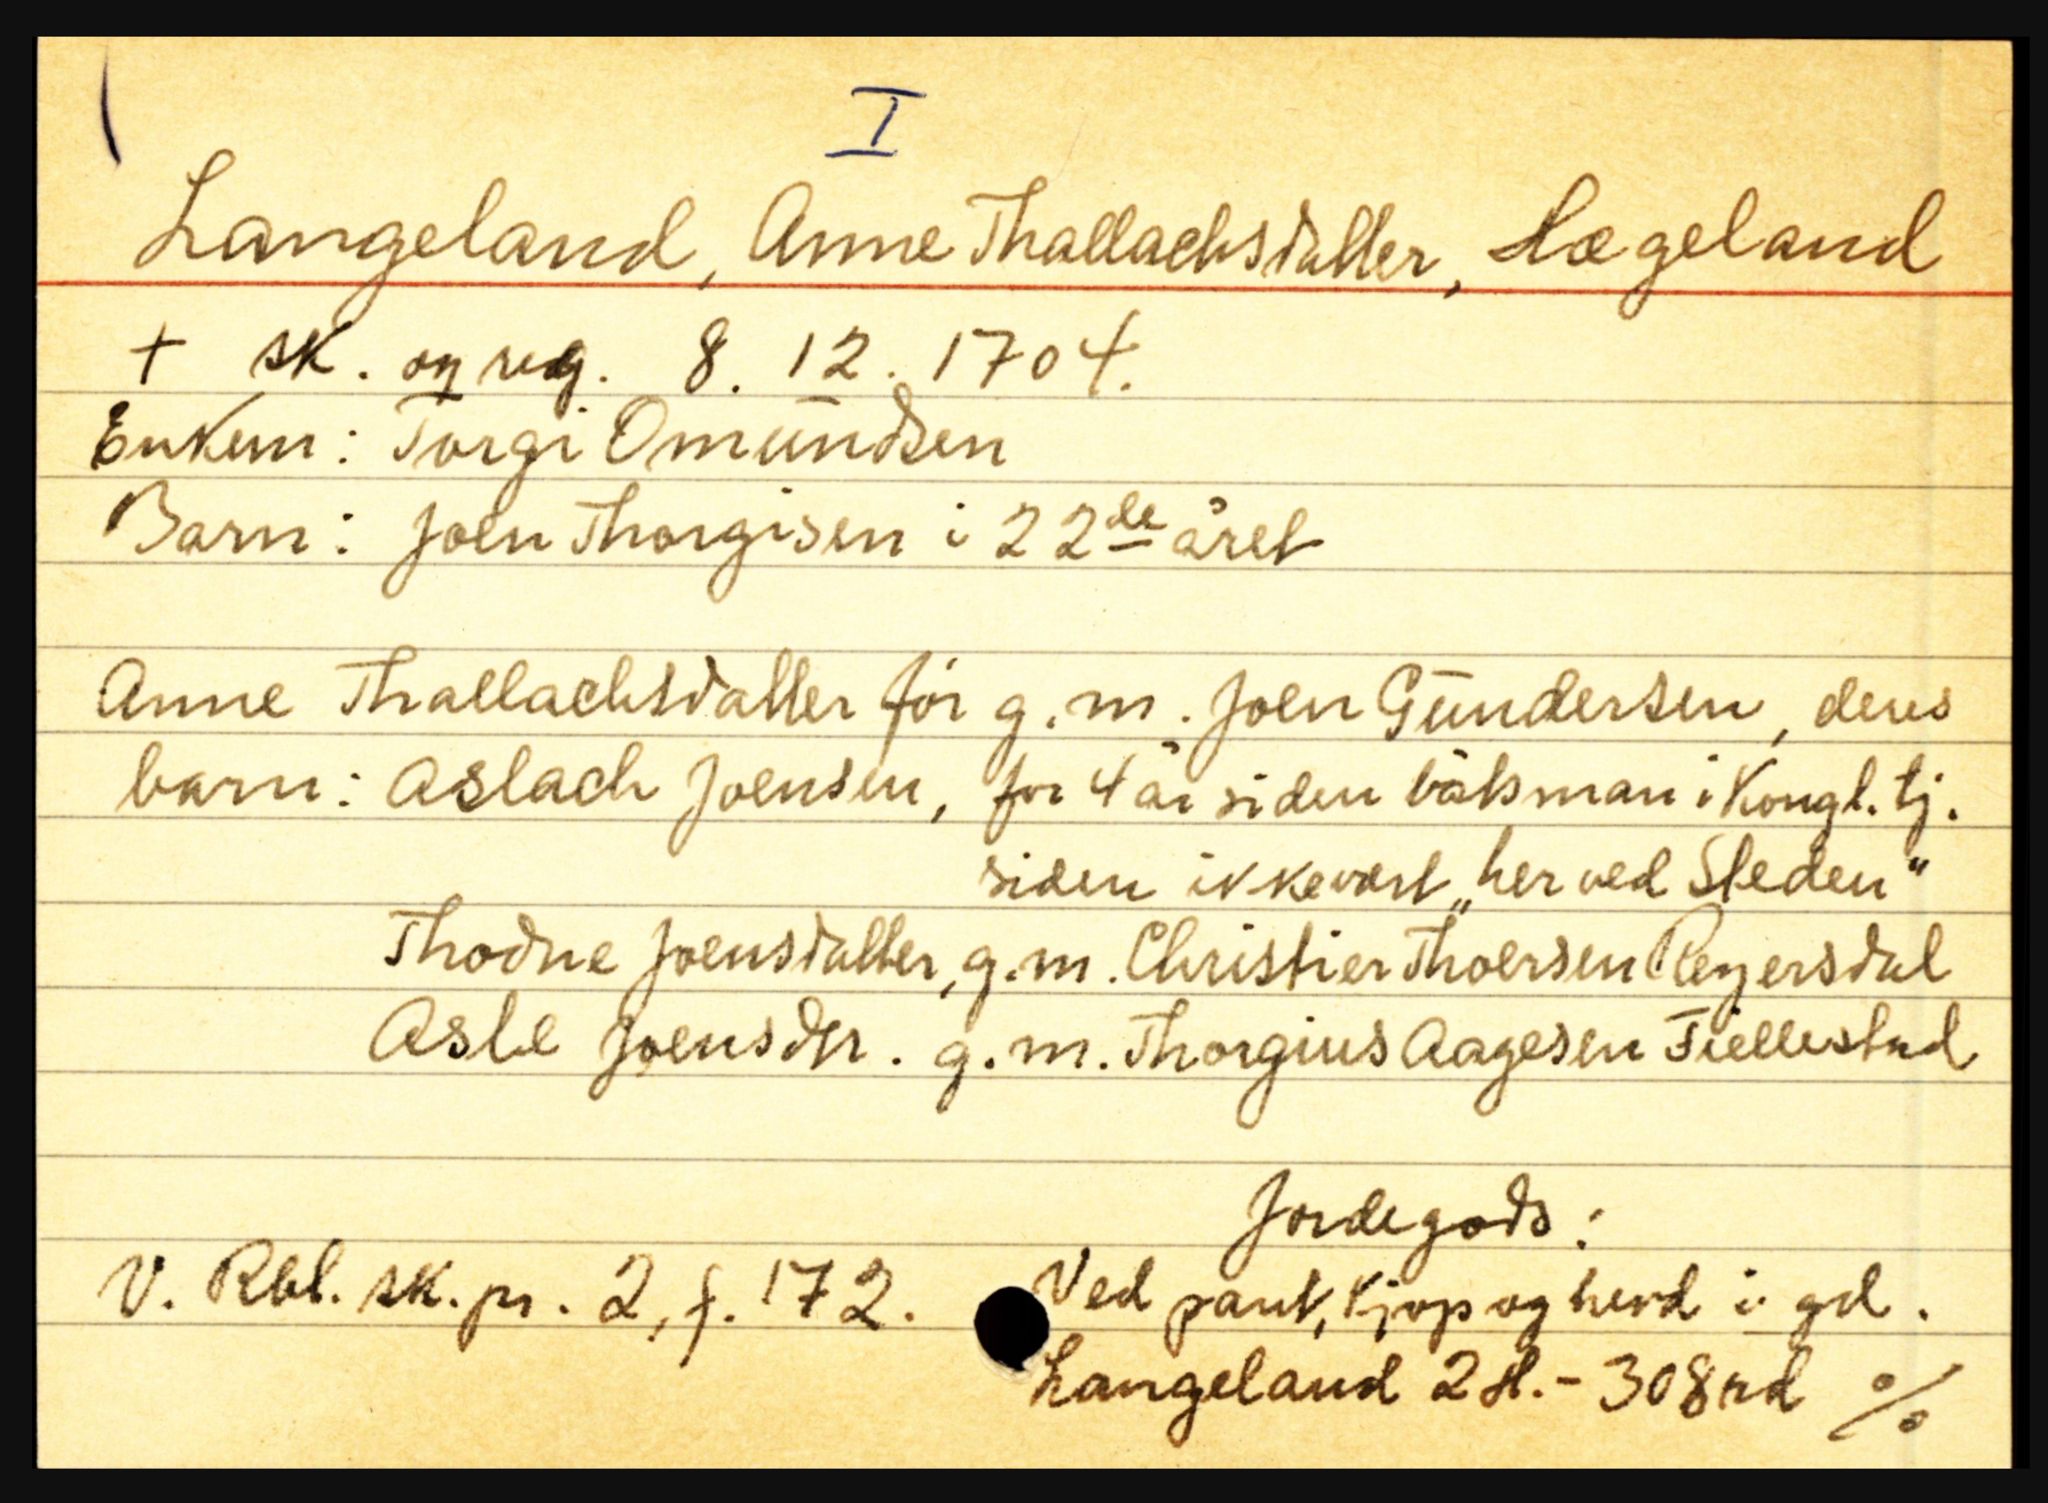 I
Langeland, Anne Thallachsdatter, Hægeland
+ sk. og reg. 8. 12. 1704.
Enkem: Torgi Omŭndsen
Barn: Joen Thorgisen i 22de året
Anne Thallachsdatter før g. m. Joen Gŭndersen, deres
barn: Aslach Joensen, for 4 år siden båtsman i Kongl. tj.
siden ikke vært „her ved Steden"
Thodne Joensdatter, g. m. Christier Thoersen Reyersdal
Asle Joensdtr. g. m. Thorgius Aagesen Fiellestad
Jordegods:
V. Rbl. sk. pr. 2, f. 172.
Ved pant, kjøp og hevd i gd.
Langeland 2 H. - 308 rd %